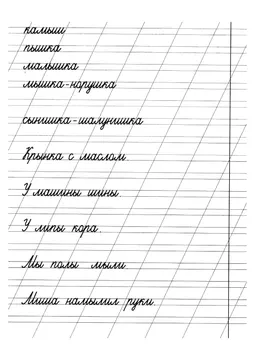 камыш
пышка
малышка
мышка-норушка
сынишка-шалунишка
Крынка с маслом.
У машины шины.
У липы кора.
Мы полы мыли.
Миша намылил руки.